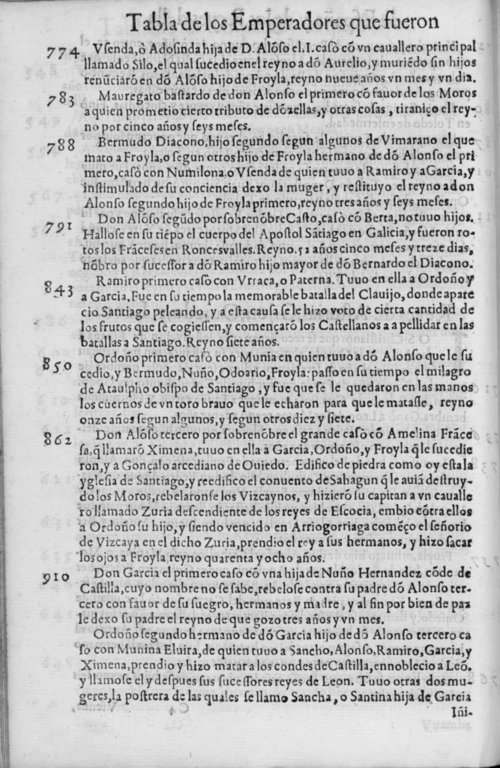 Tabla de los Emperadores que fueron
774 Vsenda, ò Adosinda hija de D. Alõso el. I. casò cõ vn cauallero principal
llamado Silo, el qual sucedio en el reyno a dõ Aurelio, y muriẽdo sin hijos
renũciarõ en dõ Alõso hijo de Froyla, reyno nueue años vn mes y vn dia.
783 Mauregato bastardo de don Alonso el primero cõ fauor de los Moros
a quien prometio cierto tributo de dõzellas, y otras cosas, tiranizo el rey-
no por cinco años y seys meses.
788 Bermudo Diacono, hijo segundo segun algunos de Vimarano el que
mato a Froyla, o segun otros hijo de Froyla hermano de dõ Alonso el pri
mero, casò con Numilona, o Vsenda de quien tuuo a Ramiro y a Garcia, y
instimulado de su conciencia dexo la muger, y restituyo el reyno a don
Alonso segundo hijo de Froyla primero, reyno tres años y seys meses.
791 Don Alõso segũdo por sobrenõbre Casto, casò cõ Berta, no tuuo hijos.
Hallose en su tiẽpo el cuerpo del Apostol Sãtiago en Galicia, y fueron ro-
tos los Frãceses en Roncesvalles. Reyno. 52 años cinco meses y treze dias,
nõbro por sucessor a dõ Ramiro hijo mayor de dõ Bernardo el Diacono.
843 Ramiro primero casò con Vrraca, o Paterna. Tuuo en ella a Ordoño y
a Garcia. Fue en su tiempo la memorable batalla del Clauijo, donde apare
cio Santiago peleando, y a esta causa se le hizo voto de cierta cantidad de
los frutos que se cogiessen, y començarõ los Castellanos a apellidar en las
batallas a Santiago. Reyno siete años.
850 Ordoño primero casò con Munia en quien tuuo a dõ Alonso que le su
cedio, y Bermudo, Nuño, Odoario, Froyla: passo en su tiempo el milagro
de Ataulpho obispo de Santiago, y fue que se le quedaron en las manos
los cuernos de vn toro brauo que le echaron para que le matasse, reyno
onze años segun algunos, y segun otros diez y siete.
862 Don Alõso tercero por sobrenõbre el grande casò cõ Amelina Frãce
sa, q̃ llamarõ Ximena, tuuo en ella a Garcia, Ordoño, y Froyla q̃ le sucedie
ron, y a Gonçalo arcediano de Ouiedo. Edifico de piedra como oy esta la
yglesia de Santiago, y reedifico el conuento de Sahagun q̃ le auiã destruy-
do los Moros, rebelaronse los Vizcaynos, y hizierõ su capitan a vn caualle
ro llamado Zuria descendiente de los reyes de Escocia, embio cõtra ellos
a Ordoño su hijo, y siendo vencido en Arriogorriaga comẽço el señorio
de Vizcaya en el dicho Zuria, prendio el rey a sus hermanos, y hizo sacar
los ojos a Froyla, reyno quarenta y ocho años.
910 Don Garcia el primero casò cõ vna hija de Nuño Hernandez cõde de
Castilla, cuyo nombre no se sabe, rebelose contra su padre dõ Alonso ter-
cero con fauor de su suegro, hermanos y madre, y al fin por bien de paz
le dexo su padre el reyno de que gozo tres años y vn mes.
Ordoño segundo hermano de dõ Garcia hijo de dõ Alonso tercero ca
so con Munina Eluira, de quien tuuo a Sancho, Alonso, Ramiro, Garcia, y
Ximena, prendio y hizo matar a los condes de Castilla, ennoblecio a Leõ.
y llamose el y despues sus sucessores reyes de Leon. Tuuo otras dos mu-
geres, la postrera de las quales se llamo Sancha, o Santina hija de Garcia
Iñi-